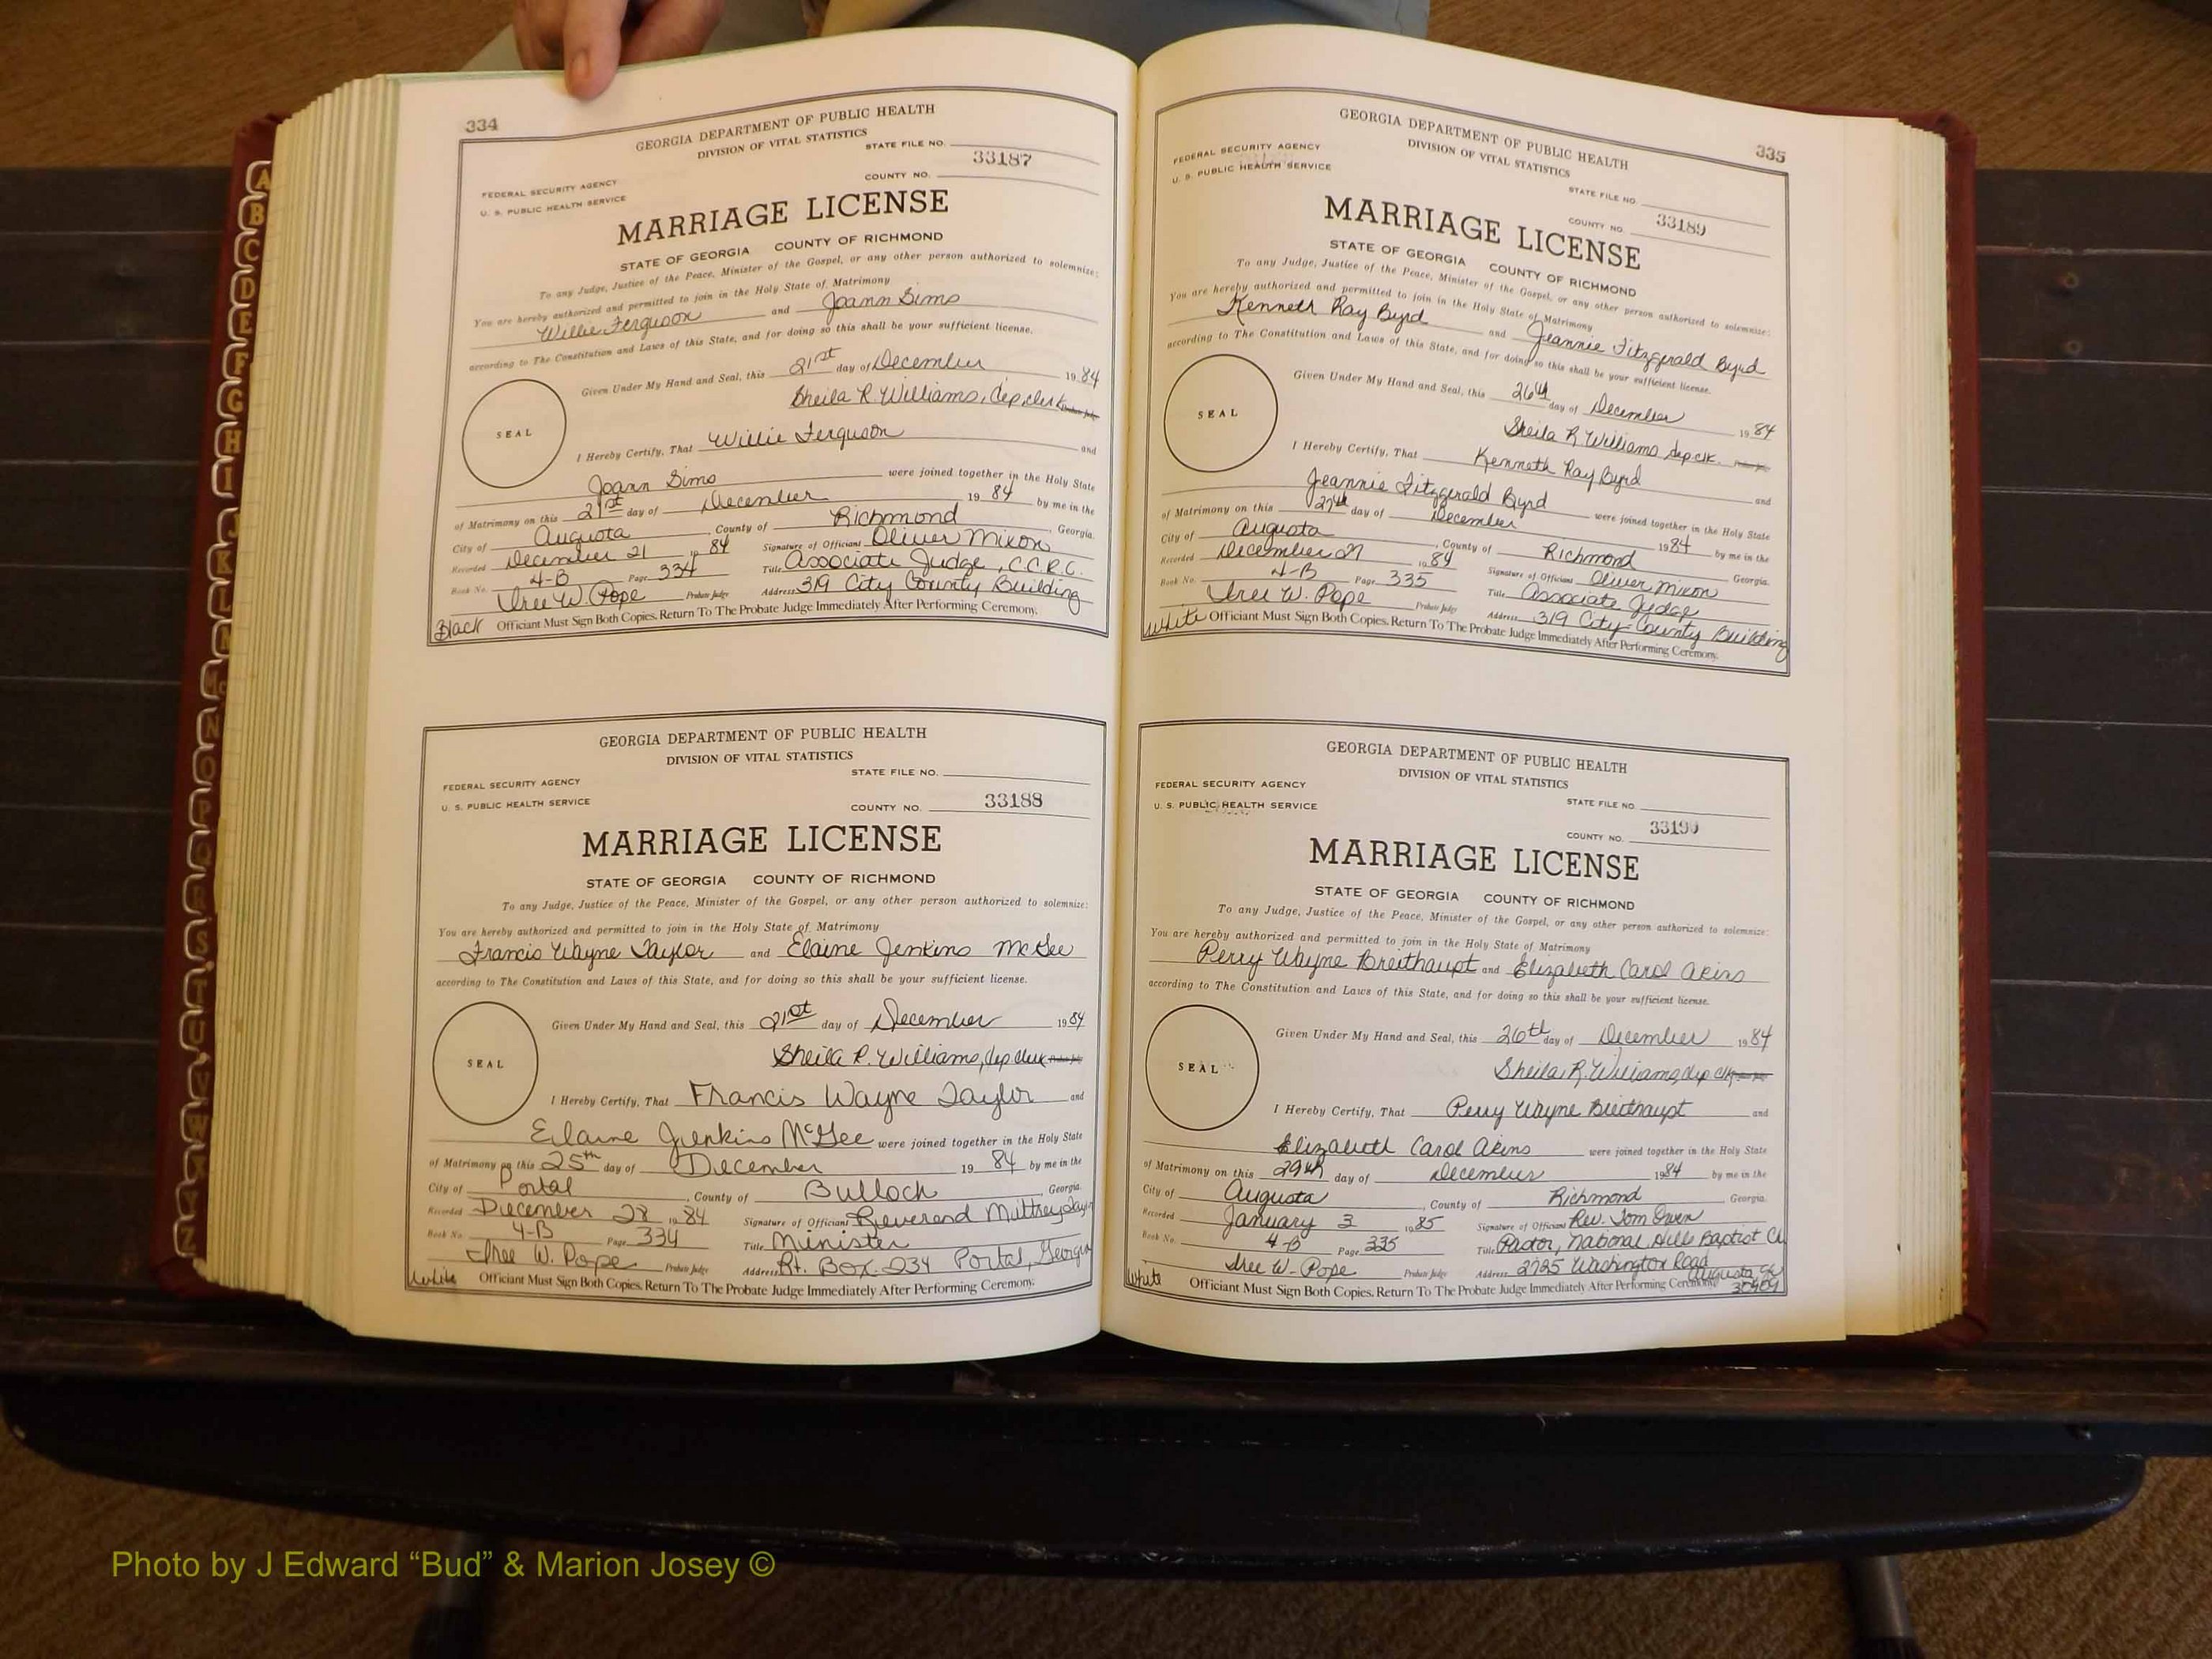 334
GEORGIA DEPARTMENT OF PUBLIC HEALTH
DIVISION OF VITAL STATISTICS
STATE FILE NO.
33187
COUNTY NO.
FEDERAL SECURITY AGENCY
U. S. PUBLIC HEALTH SERVICE
MARRIAGE LICENSE
STATE OF GEORGIA COUNTY OF RICHMOND
To any Judge, Justice of the Peace, Minister of the Gospel, or any other person authorized to solemnize:
You are hereby authorized and permitted to join in the Holy State of Matrimony
Willie Ferguson and Joann Sims
according to The Constitution and Laws of this State, and for doing so this shall be your sufficient license.
Given Under My Hand and Seal, this 21st day of December 1984
Sheila R. Williams, dep. clerk Probate Judge
SEAL
I Hereby Certify, That Willie Ferguson and
Joann Sims were joined together in the Holy State
of Matrimony on this 21st day of December 1984 by me in the
City of Augusta, County of Richmond, Georgia.
Recorded December 21 1984 Signature of Officiant Oliver Mixon
Book No. 4-B Page 334 Title Associate Judge, C.C.R.C.
Iree W. Pope Probate Judge Address 319 City County Building
Black Officiant Must Sign Both Copies. Return To The Probate Judge Immediately After Performing Ceremony.
GEORGIA DEPARTMENT OF PUBLIC HEALTH
DIVISION OF VITAL STATISTICS
STATE FILE NO.
FEDERAL SECURITY AGENCY
U. S. PUBLIC HEALTH SERVICE
COUNTY NO. 33188
MARRIAGE LICENSE
STATE OF GEORGIA COUNTY OF RICHMOND
To any Judge, Justice of the Peace, Minister of the Gospel, or any other person authorized to solemnize:
You are hereby authorized and permitted to join in the Holy State of Matrimony
Francis Wayne Taylor and Elaine Jenkins McGee
according to The Constitution and Laws of this State, and for doing so this shall be your sufficient license.
Given Under My Hand and Seal, this 21st day of December 1984
Sheila R. Williams, dep. clerk Probate Judge
SEAL
I Hereby Certify, That Francis Wayne Taylor and
Elaine Jenkins McGee were joined together in the Holy State
of Matrimony on this 25th day of December 1984 by me in the
City of Portal, County of Bulloch, Georgia.
Recorded December 28 1984 Signature of Officiant Reverend
Book No. 4-B Page 334 Title Minister
Iree W. Pope Probate Judge Address Rt. Box 234 Portal, Georgia
White Officiant Must Sign Both Copies. Return To The Probate Judge Immediately After Performing Ceremony.
335
GEORGIA DEPARTMENT OF PUBLIC HEALTH
DIVISION OF VITAL STATISTICS
FEDERAL SECURITY AGENCY
U. S. PUBLIC HEALTH SERVICE
STATE FILE NO.
COUNTY NO. 33189
MARRIAGE LICENSE
STATE OF GEORGIA COUNTY OF RICHMOND
To any Judge, Justice of the Peace, Minister of the Gospel, or any other person authorized to solemnize:
You are hereby authorized and permitted to join in the Holy State of Matrimony
Kenneth Ray Byrd and Jeannie Fitzgerald Byrd
according to The Constitution and Laws of this State, and for doing so this shall be your sufficient license.
Given Under My Hand and Seal, this 26th day of December 1984
Sheila R. Williams dep. clk. Probate Judge
SEAL
I Hereby Certify, That Kenneth Ray Byrd and
Jeannie Fitzgerald Byrd were joined together in the Holy State
of Matrimony on this 27th day of December 1984 by me in the
City of Augusta, County of Richmond, Georgia.
Recorded December 27 1984 Signature of Officiant Oliver Mixon
Book No. 4-B Page 335 Title Associate Judge
Iree W. Pope Probate Judge Address 319 City-County Building
White Officiant Must Sign Both Copies. Return To The Probate Judge Immediately After Performing Ceremony.
GEORGIA DEPARTMENT OF PUBLIC HEALTH
DIVISION OF VITAL STATISTICS
FEDERAL SECURITY AGENCY
U. S. PUBLIC HEALTH SERVICE
STATE FILE NO.
COUNTY NO. 33190
MARRIAGE LICENSE
STATE OF GEORGIA COUNTY OF RICHMOND
To any Judge, Justice of the Peace, Minister of the Gospel, or any other person authorized to solemnize:
You are hereby authorized and permitted to join in the Holy State of Matrimony
Perry Wayne Breithaupt and Elizabeth Carol Akins
according to The Constitution and Laws of this State, and for doing so this shall be your sufficient license.
Given Under My Hand and Seal, this 26th day of December 1984
Sheila R. Williams, dep clk Probate Judge
SEAL
I Hereby Certify, That Perry Wayne Breithaupt and
Elizabeth Carol Akins were joined together in the Holy State
of Matrimony on this 29th day of December 1984 by me in the
City of Augusta, County of Richmond, Georgia.
Recorded January 3 1985 Signature of Officiant Rev. Tom Owen
Book No. 4-B Page 335 Title Pastor, National Hills Baptist Ch
Iree W. Pope Probate Judge Address 2725 Washington Road
Augusta, GA
White Officiant Must Sign Both Copies. Return To The Probate Judge Immediately After Performing Ceremony.
A
B
C
D
E
F
G
H
I
J
K
L
M
Mc
N
O
P
Q
R
S
T
U
V
W
X
Y
Z
Photo by J Edward “Bud” & Marion Josey ©